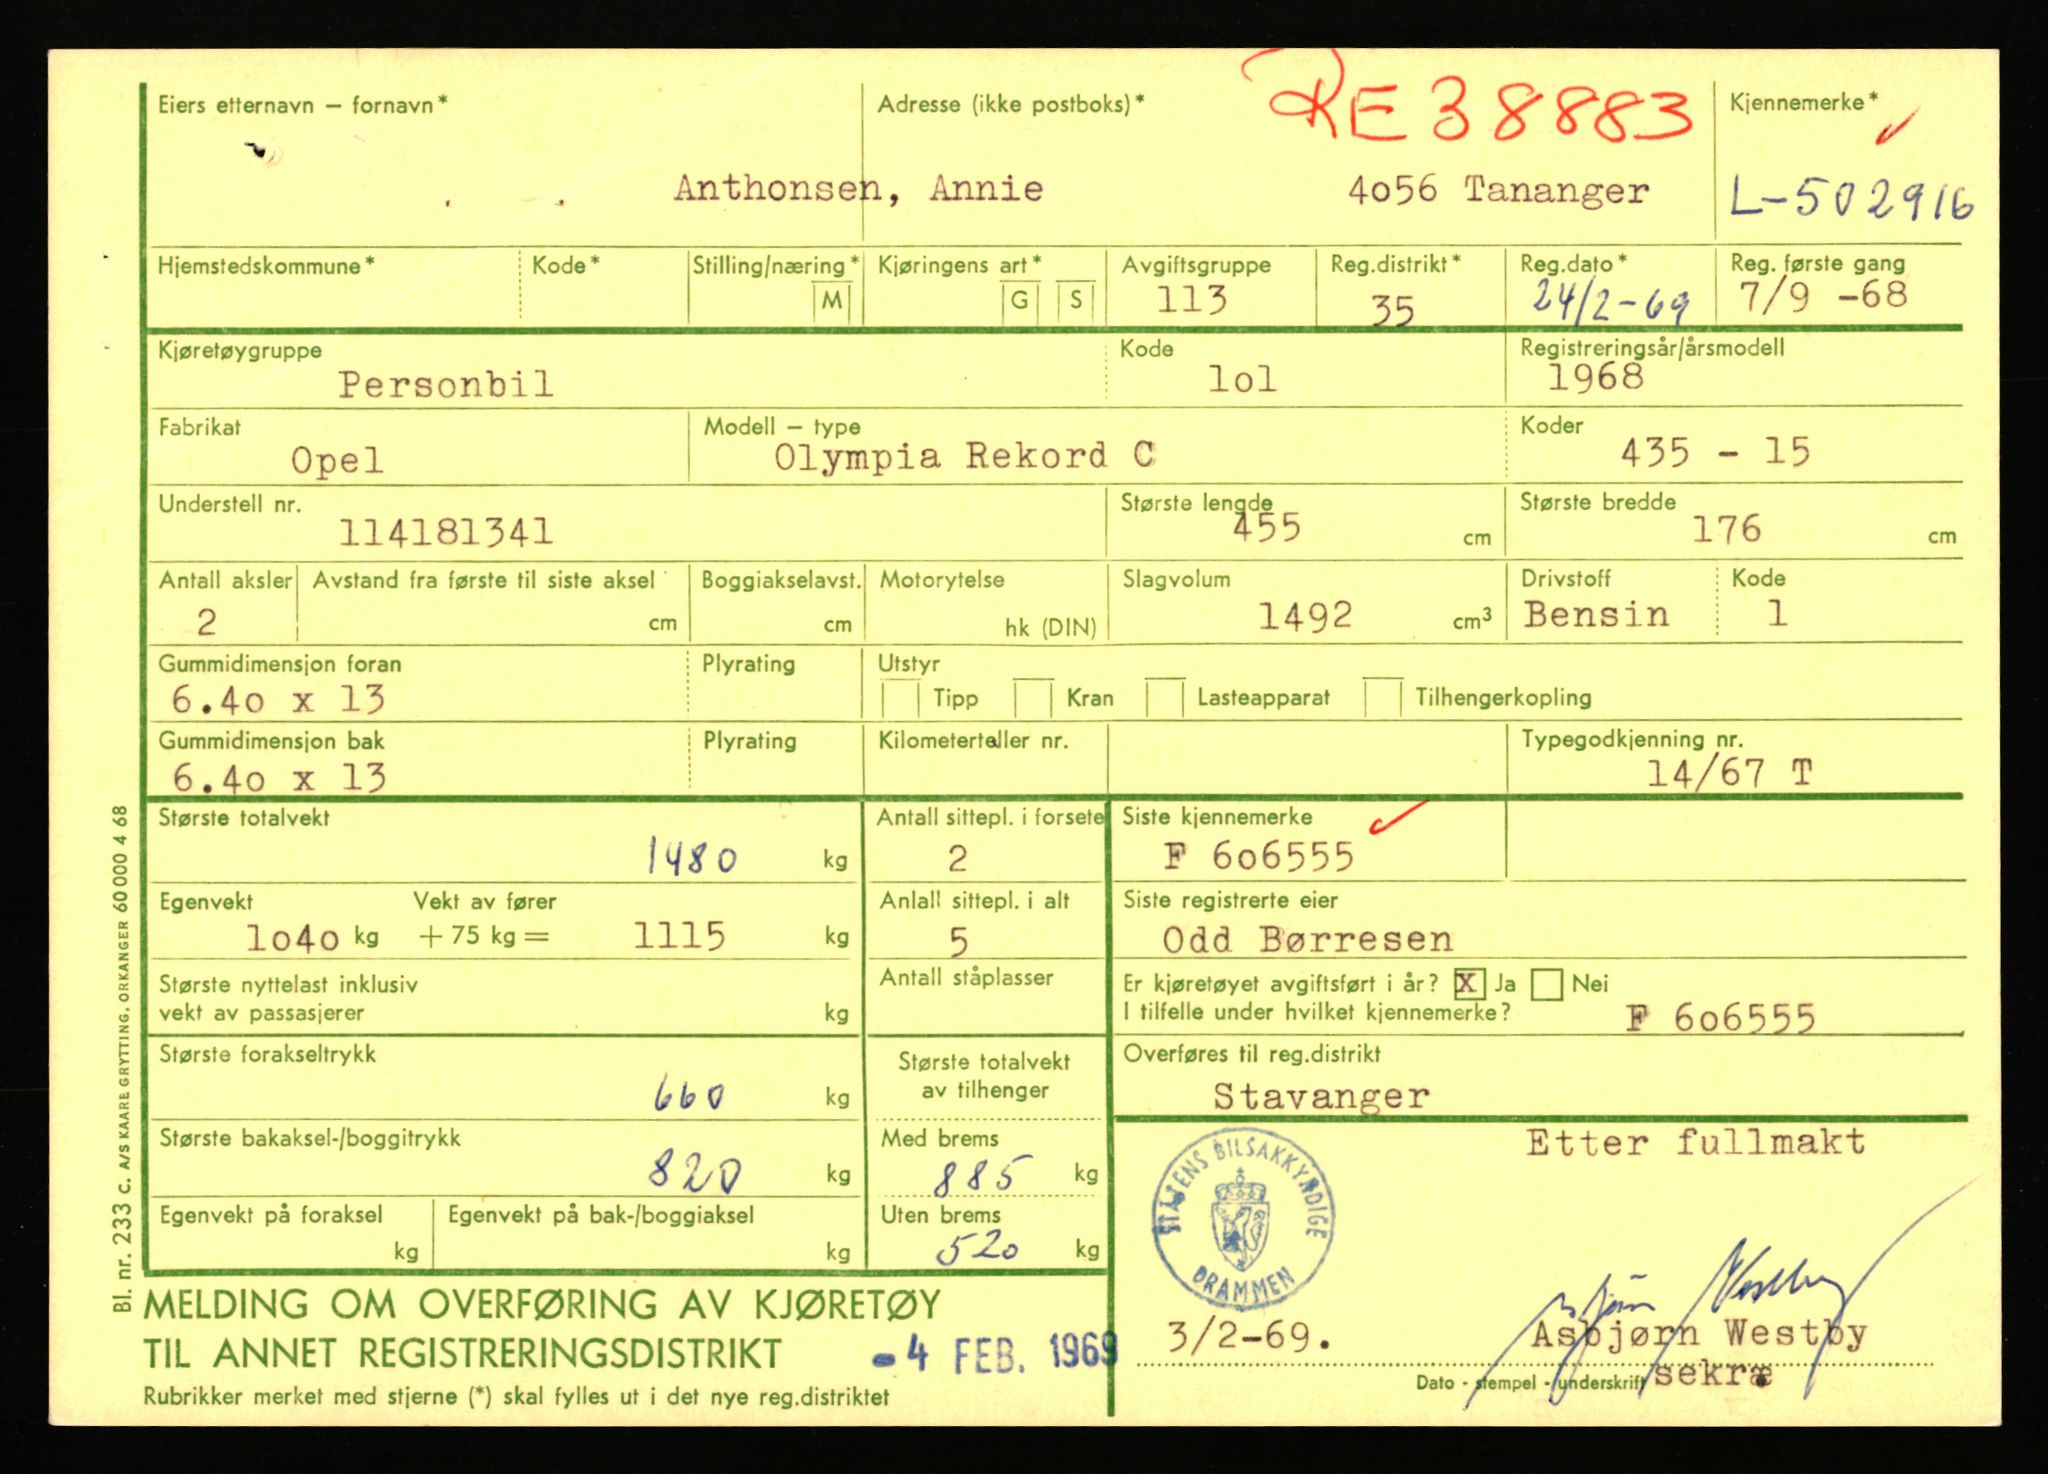 RE 38883
Eiers etternavn – fornavn* Adresse (ikke postboks)* Kjennemerke*
Anthonsen, Annie 4o56 Tananger L-502916
Hjemstedskommune* Kode* Stilling/næring* Kjøringens art* Avgiftsgruppe Reg.distrikt* Reg.dato* Reg. første gang
M G S 113 35 24/2-69 7/9 -68
Kjøretøygruppe Kode Registreringsår/årsmodell
Personbil lol 1968
Fabrikat Modell – type Koder
Opel Olympia Rekord C 435 - 15
Understell nr. Største lengde Største bredde
114181341 455 cm 176 cm
Antall aksler Avstand fra første til siste aksel Boggiakselavst. Motorytelse Slagvolum Drivstoff Kode
2 cm cm hk (DIN) 1492 cm³ Bensin 1
Gummidimensjon foran Plyrating Utstyr
6.4o x 13 Tipp Kran Lasteapparat Tilhengerkopling
Gummidimensjon bak Plyrating Kilometerteller nr. Typegodkjenning nr.
6.4o x 13 14/67 T
Største totalvekt Antall sittepl. i forsete Siste kjennemerke
1480 kg 2 F 6o6555
Egenvekt Vekt av fører Anlall sittepl. i alt Siste registrerte eier
lo4o kg + 75 kg = 1115 kg 5 Odd Børresen
Største nyttelast inklusiv Antall ståplasser Er kjøretøyet avgiftsført i år? X Ja Nei
vekt av passasjerer kg I tilfelle under hvilket kjennemerke? F 6o6555
Største forakseltrykk Største totalvekt Overføres til reg.distrikt
660 kg av tilhenger Stavanger
Største bakaksel-/boggitrykk Med brems Etter fullmakt
820 kg 885 kg
Egenvekt på foraksel Egenvekt på bak-/boggiaksel Uten brems
kg kg 520 kg
STATENS BILSAKKYNDIGE DRAMMEN
Asbjørn Westby
MELDING OM OVERFØRING AV KJØRETØY
TIL ANNET REGISTRERINGSDISTRIKT
-4 FEB. 1969
3/2-69. Asbjørn Westby
Dato - stempel - underskrift sekræ
Rubrikker merket med stjerne (*) skal fylles ut i det nye reg.distriktet
Bl. nr. 233 C. A/S KAARE GRYTTING, ORKANGER 60 000 4 68